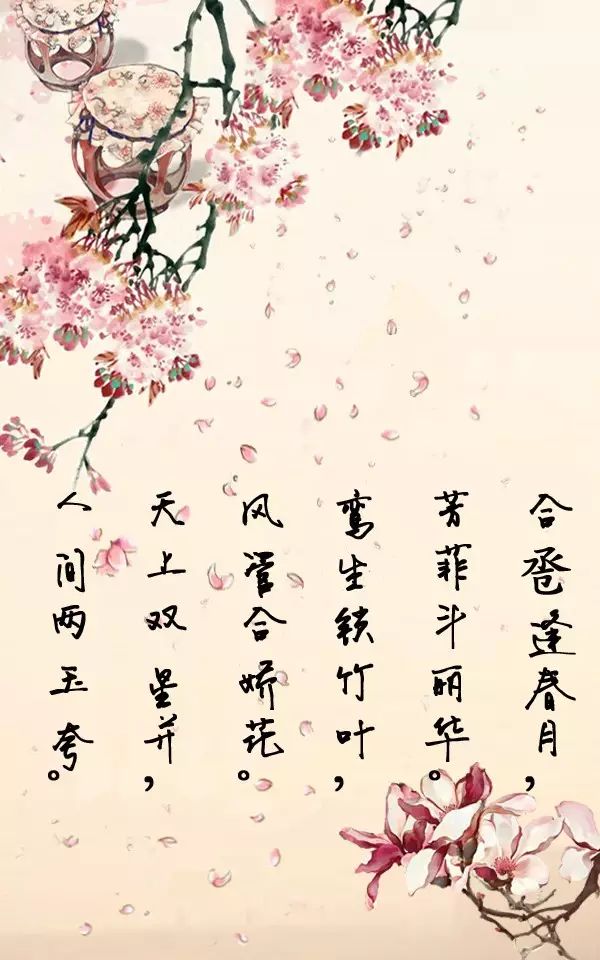 合卺逢春月，
芳菲斗丽华。
鸾生锁竹叶，
风管合娇花。
天上双星并，
人间两玉夸。